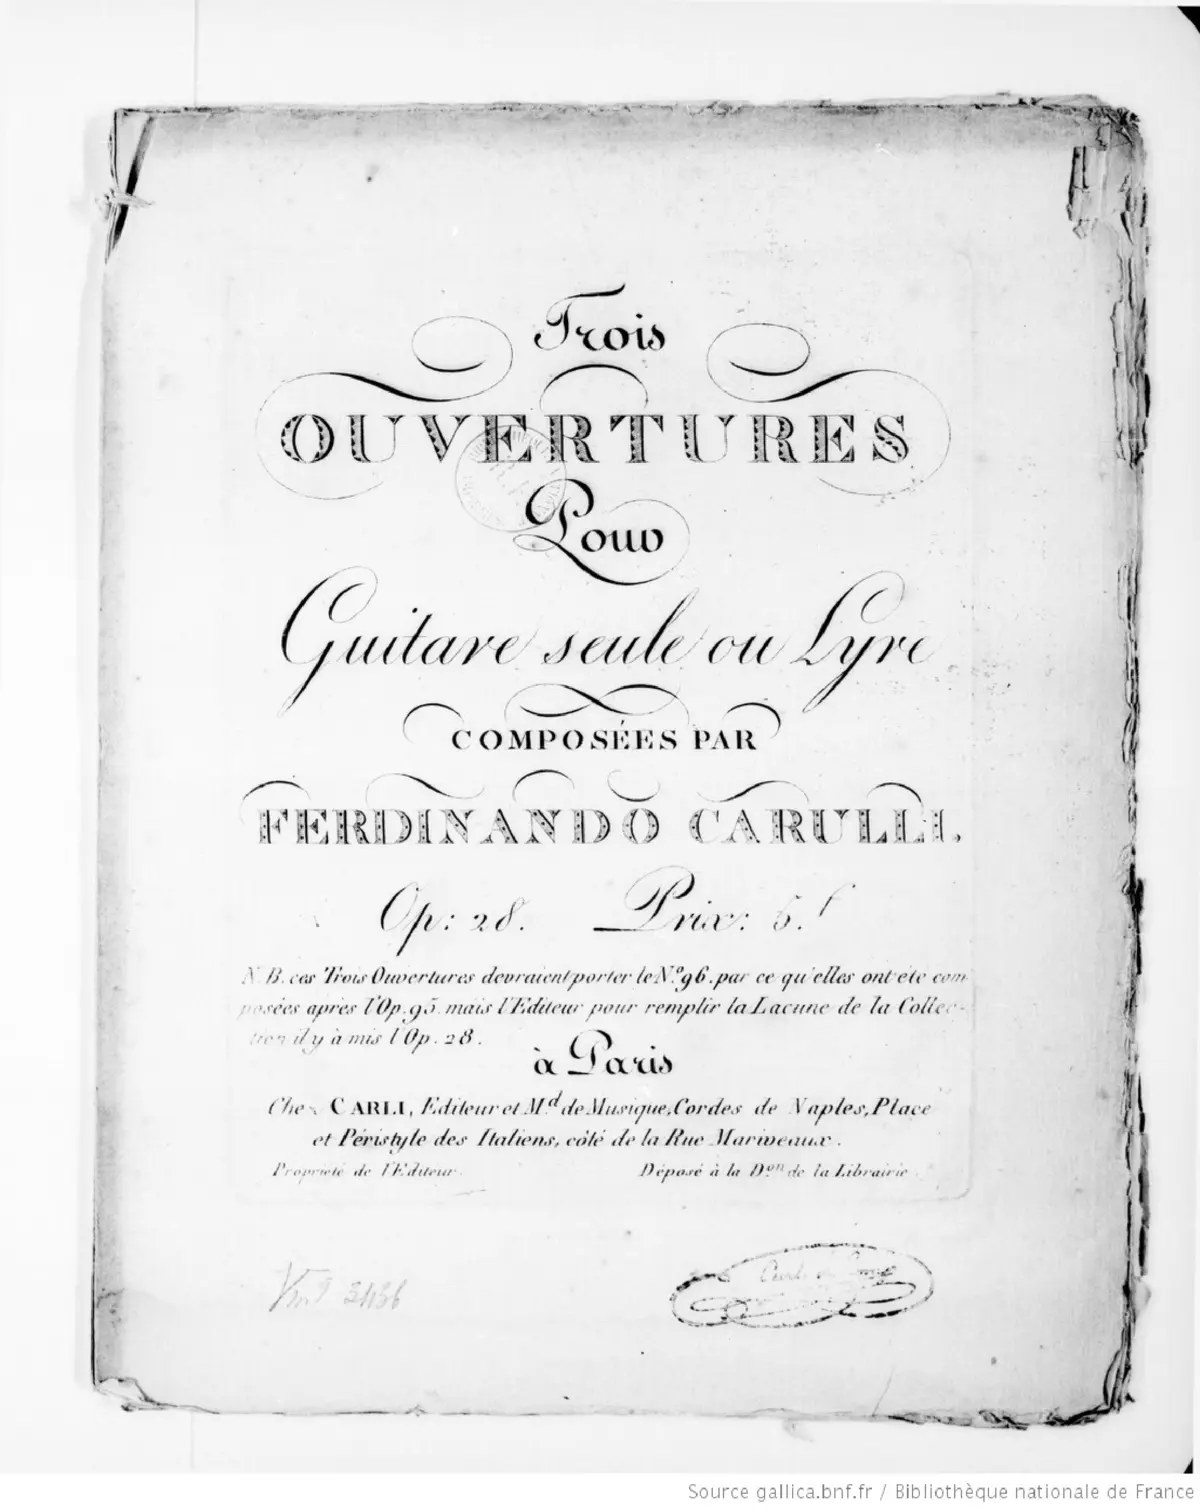 Trois
OUVERTURES
Pour
Guitare seule ou Lyre
COMPOSÉES PAR
FERDINANDO CARULLI.
Op: 28. Prix: 5.f
N.B. ces Trois Ouvertures devraient porter le N.o 96. par ce qu'elles ont été com
posées après l'Op. 95. mais l'Editeur pour remplir la Lacune de la Collec-
tion il y à mis l'Op. 28.
à Paris
Chez CARLI, Editeur et M.d de Musique, Cordes de Naples, Place
et Péristyle des Italiens, côté de la Rue Marivaux.
Propriété de l'Editeur. Déposé à la D.on de la Librairie.
Vm9 3436
Source gallica.bnf.fr / Bibliothèque nationale de France